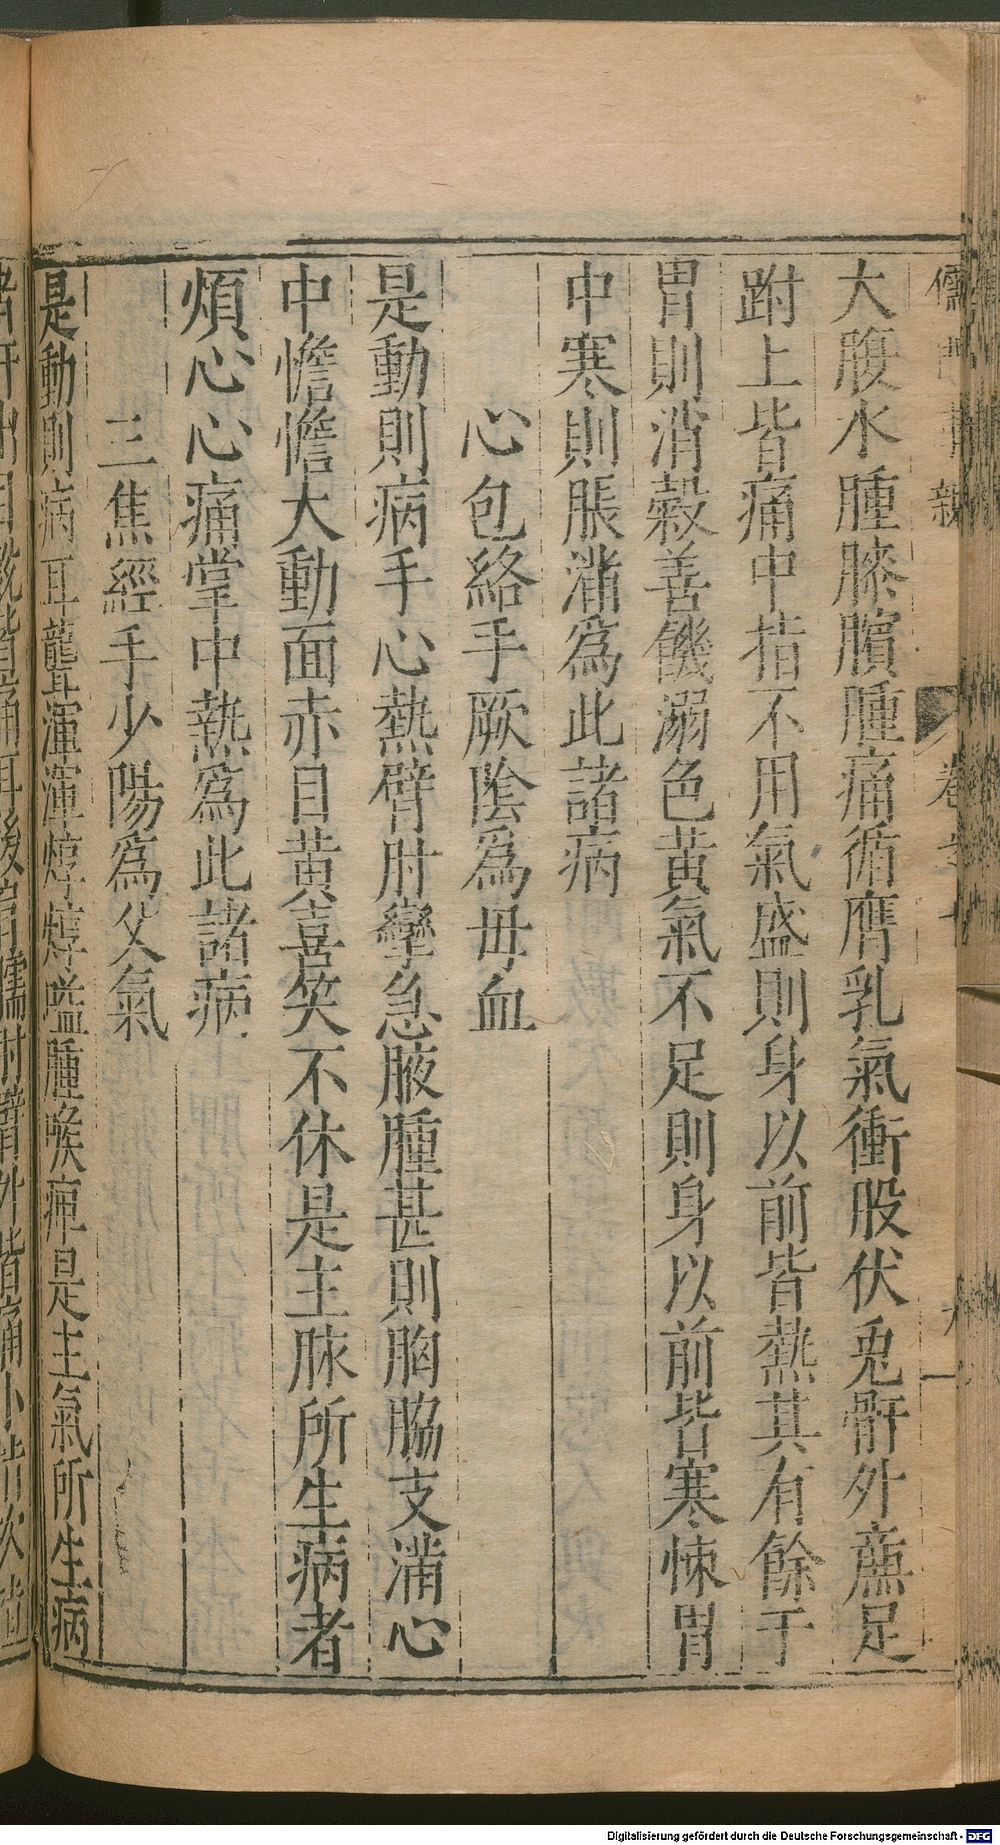 儒門事親
大腹水腫膝臏腫痛循膺乳氣衝股伏兎骭外亷足
跗上皆痛中指不用氣盛則身以前皆熱其有餘于
胃則消穀善饑溺色黄氣不足則身以前皆寒悚胃
中寒則脹滿爲此諸病
心包絡手厥陰爲毋血
是動則病手心熱臂肘攣急腋腫甚則胸脇支滿心
中憺憺大動面赤目黄喜笑不休是主脉所生病者
煩心心痛掌中熱爲此諸病
三焦經手少陽爲父氣
是動則病耳聾渾渾焞焞嗌腫喉痺是主氣所生病
Digitalisierung gefördert durch die Deutsche Forschungsgemeinschaft - DFG